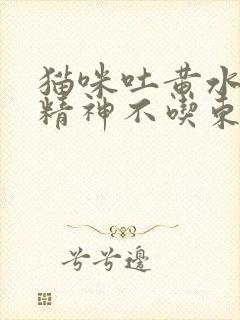 猫咪吐黄水
精神不喫東
兮兮邊